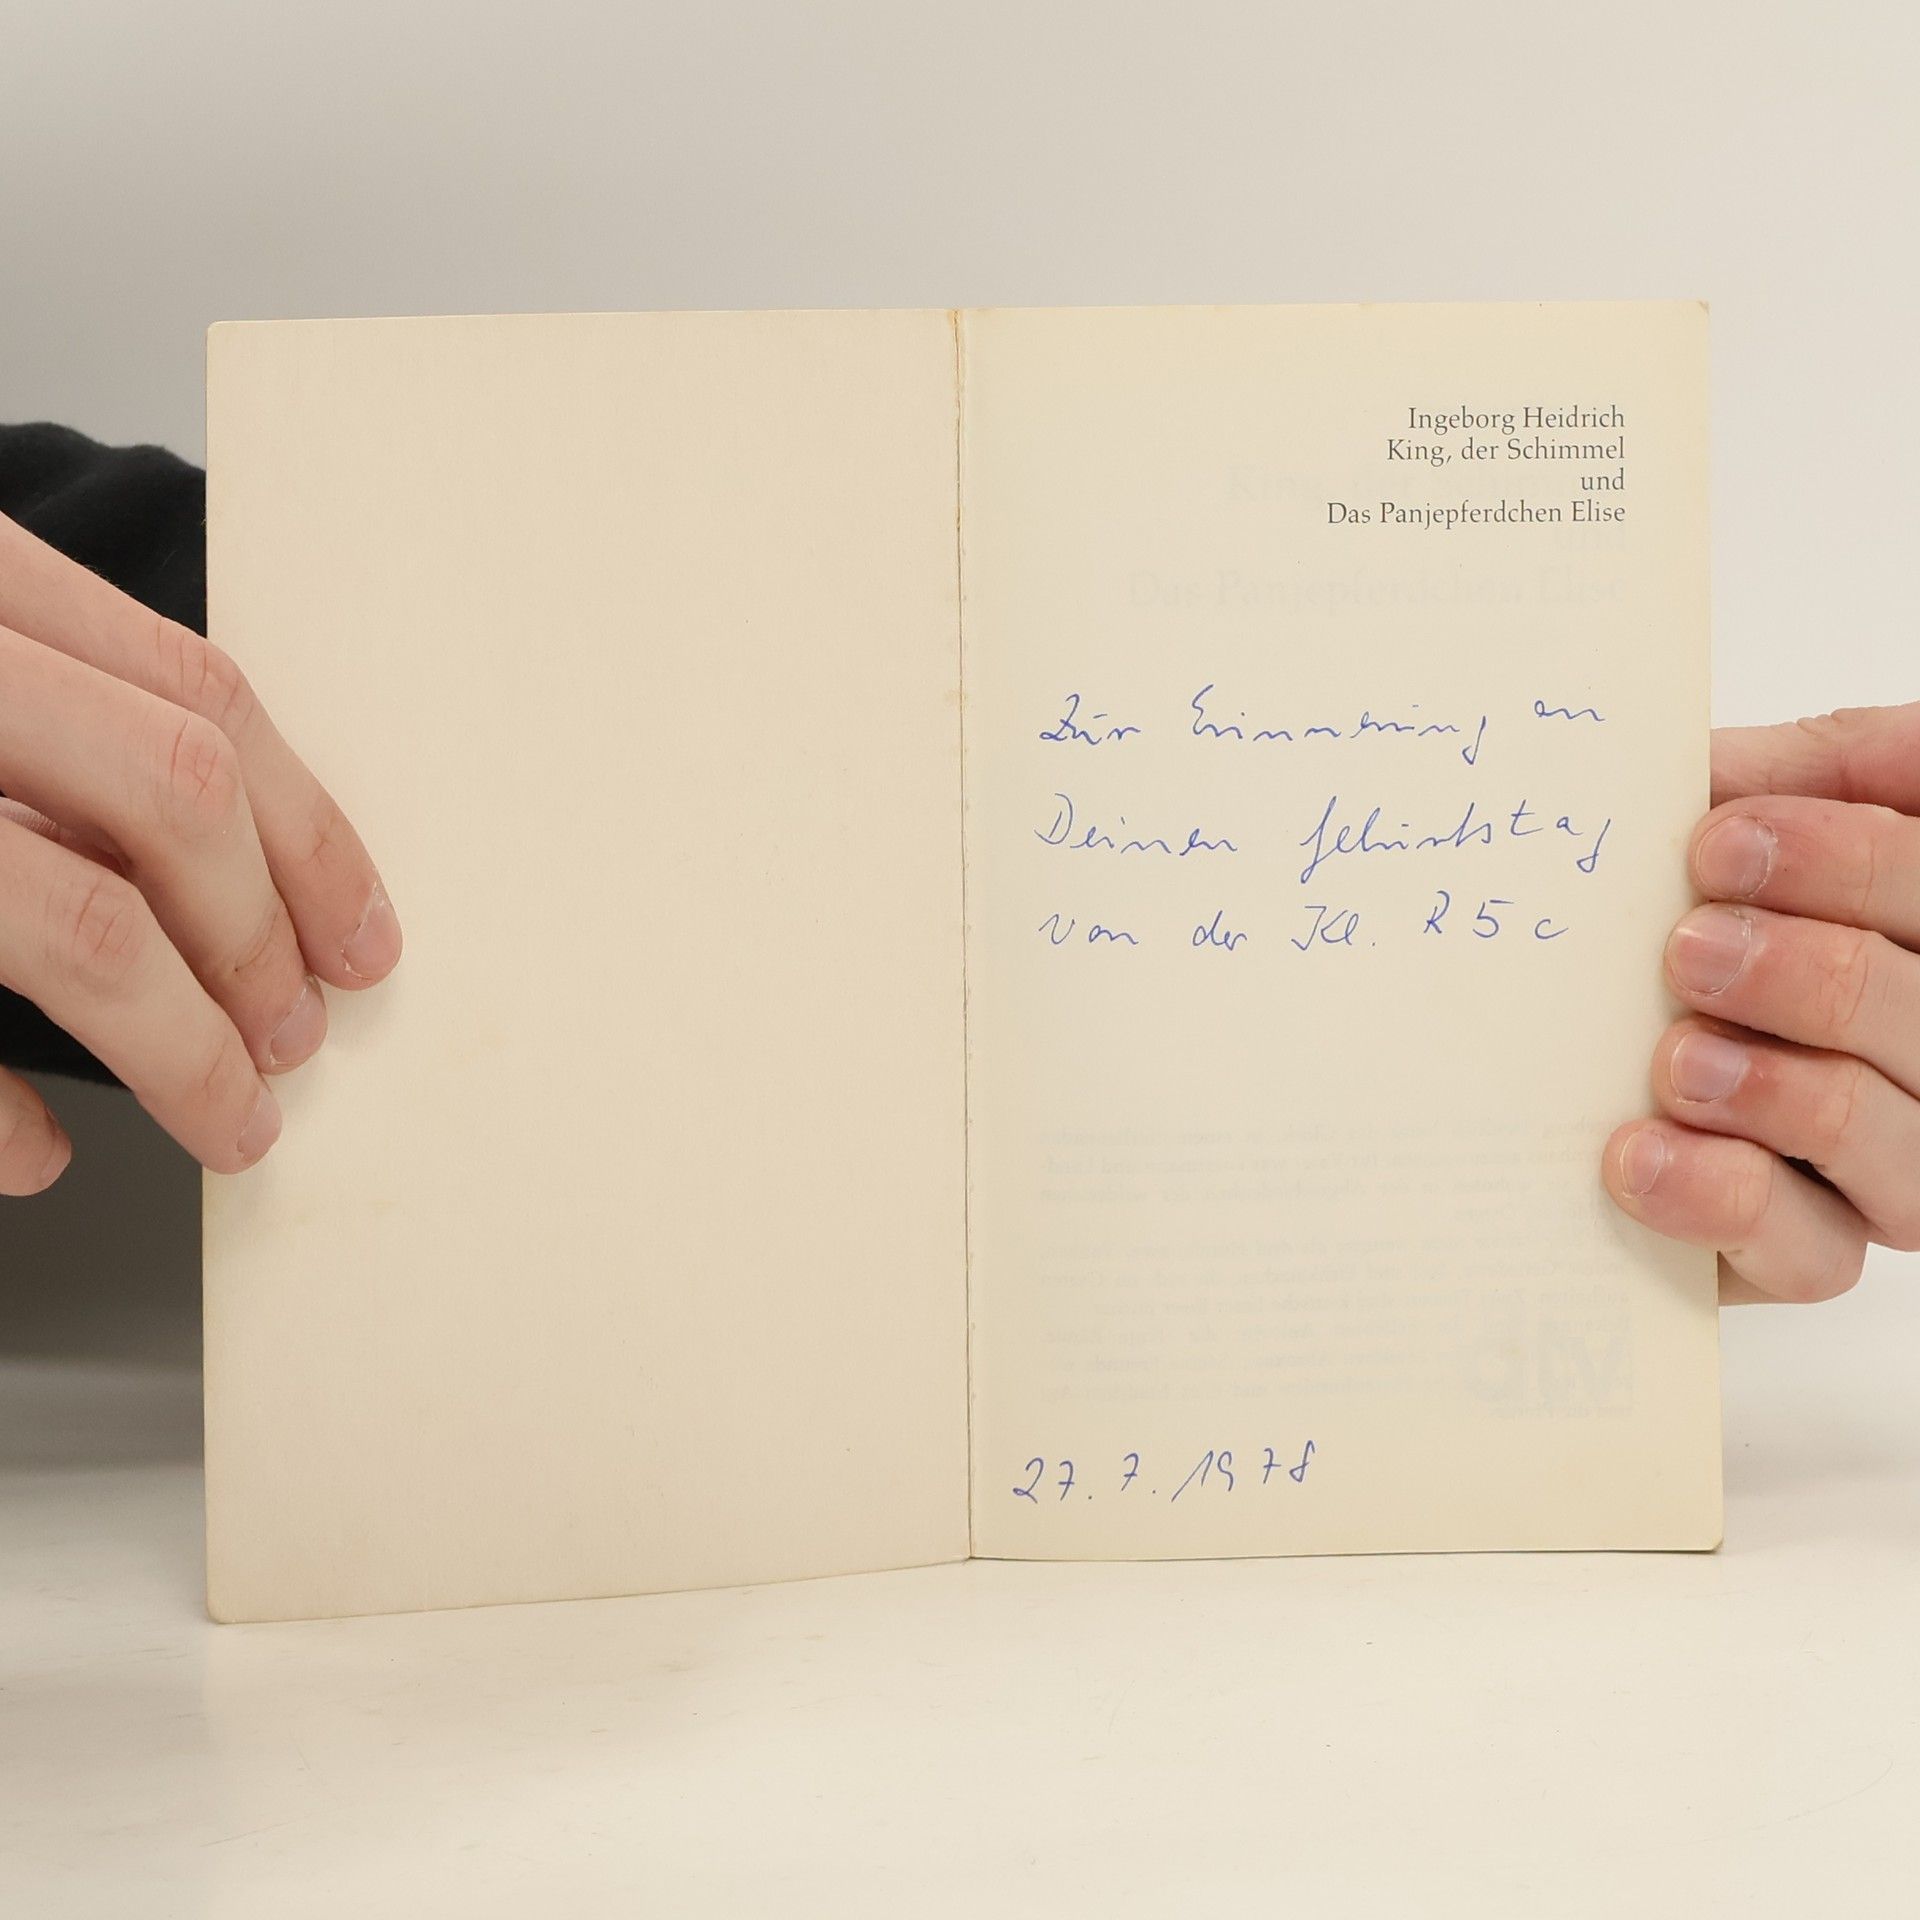 Ingeborg Heidrich
King, der Schimmel
und
Das Panjepferdchen Elise
Zur Erinnerung an
Deinen Geburtstag
von der Kl. R5c
27. 7. 1978